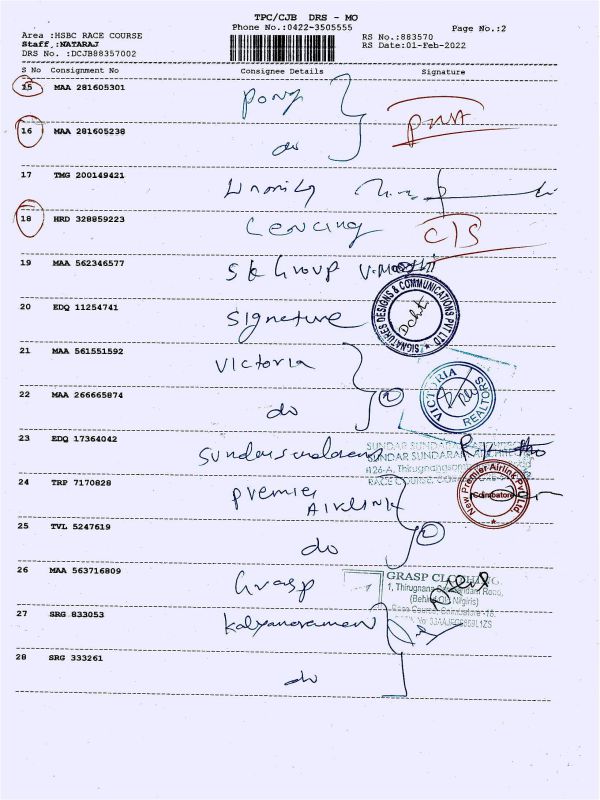 TPC/CJB DRS - MO
Phone No.:0422-3505555
Page No.:2
Area :HSBC RACE COURSE
Staff,:NATARAJ
DRS No. :DCJB88357002
RS No.:883570
RS Date:01-Feb-2022
S No Consignment No Consignee Details Signature
15 MAA 281605301 Pony
16 MAA 281605238 do
17 TMG 200149421
18 HRD 328859223 C/S
19 MAA 562346577 Sk Group
20 EDQ 11254741 Signature
SIGNATURES DESIGNS & COMMUNICATIONS PVT LTD
21 MAA 561551592 Victoria
22 MAA 266665874 do
VICTORIA REALTORS
23 EDQ 17364042 Sundar sundaram
SUNDAR SUNDARAM
RACE COURSE,
24 TRP 7170828 Premier AIRLINK
New Premier Airlink Pvt Ltd
Coimbatore
25 TVL 5247619 do
26 MAA 563716809 Grasp
GRASP CLOTHING.
1, Thirugnana
(Behind Nilgiris)
Race Course, Coimbatore -18.
27 SRG 833053 Kalyanaraman
28 SRG 333261 do